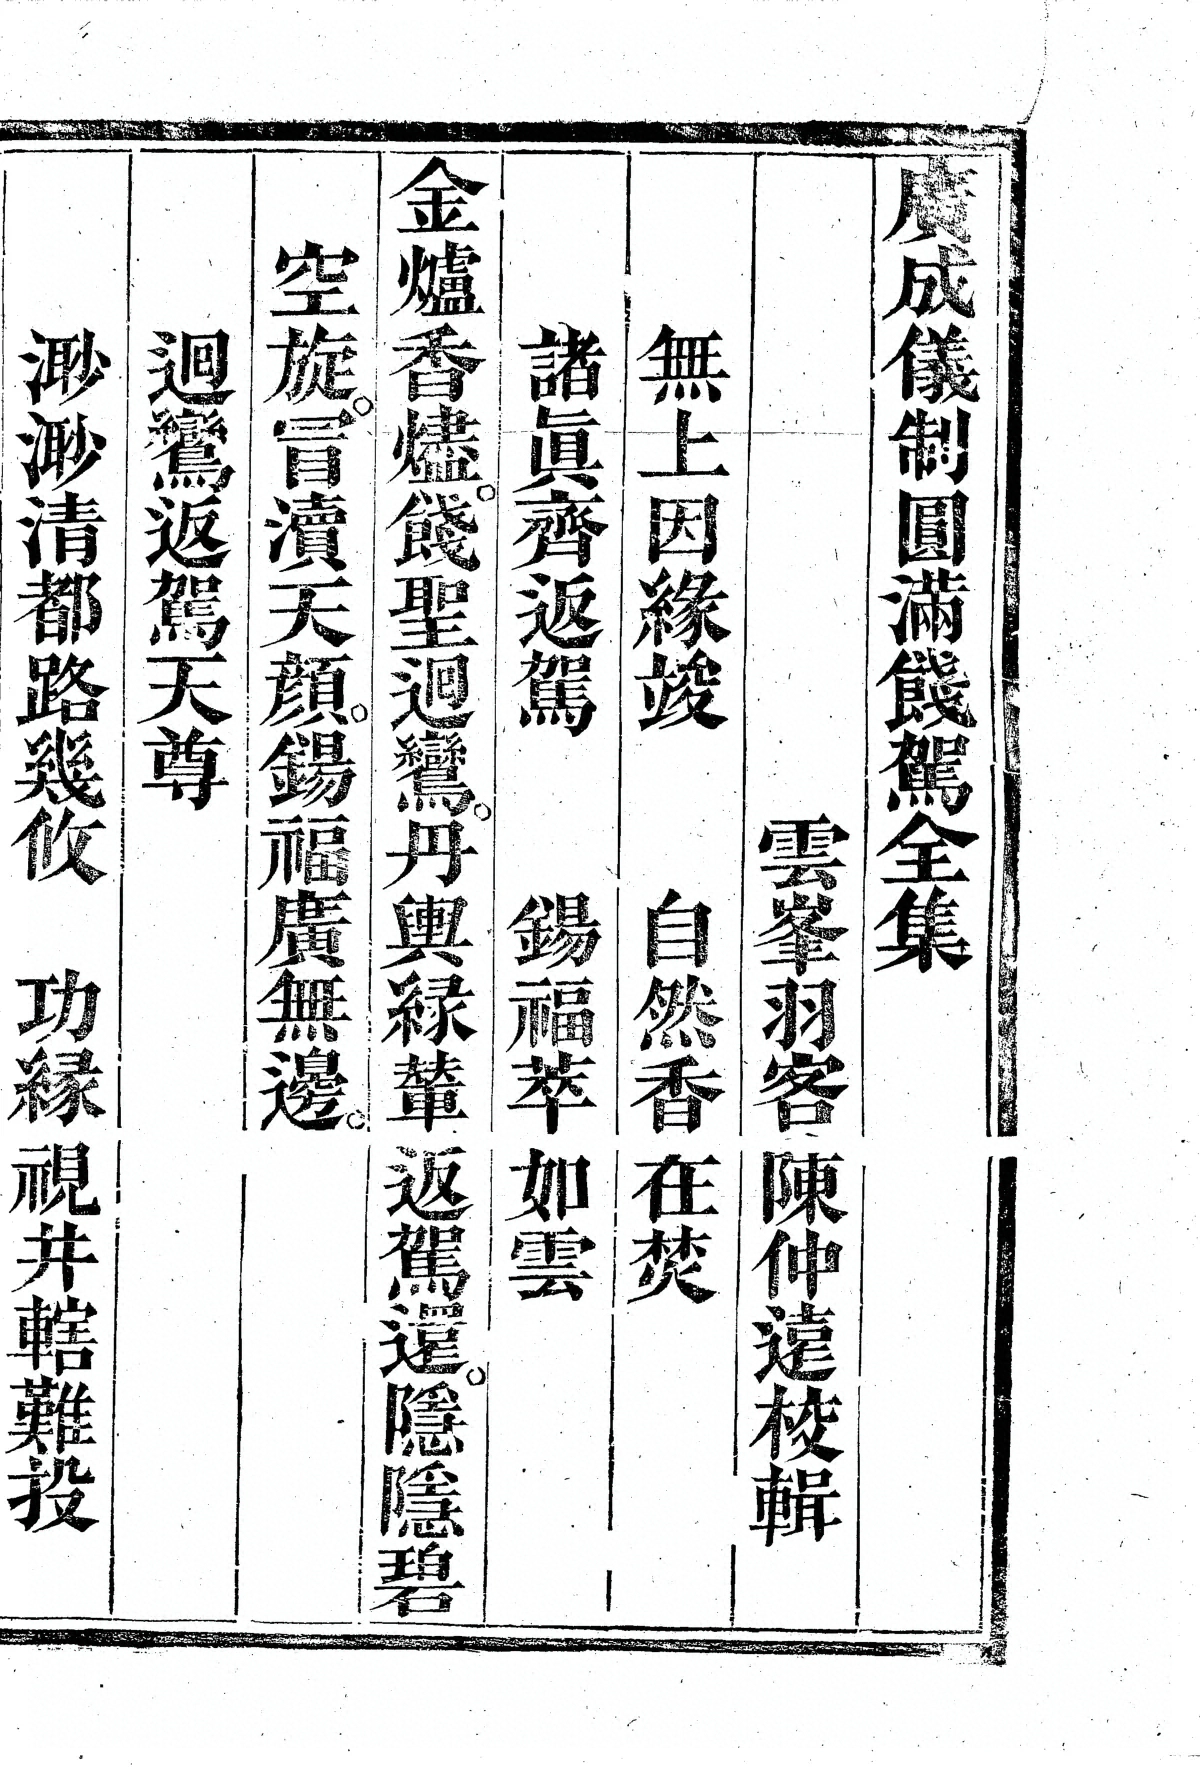 廣成儀制圓滿餞駕全集
雲峯羽客陳仲遠校輯
無上因緣竣　自然香在焚
諸眞齊返駕　錫福萃如雲
金爐香燼。餞聖迴鸞。丹輿緑輦返駕還。隱隱碧
空旋。冒瀆天顔。錫福廣無邊。
迴鸞返駕天尊
渺渺清都路幾攸　功緣視井轄難投